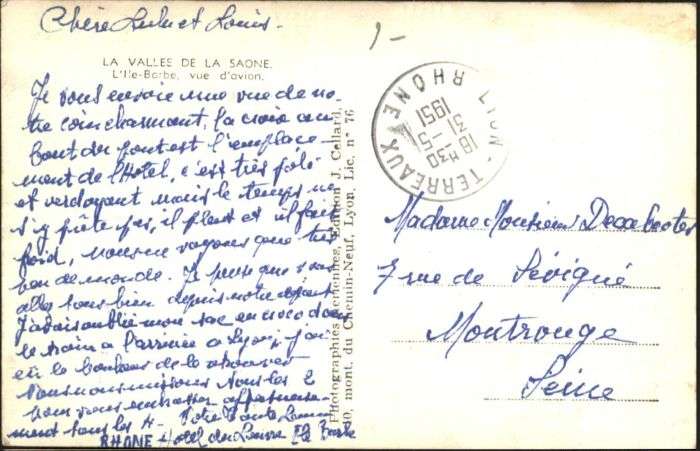 Chère Lulu et Louis -
LA VALLEE DE LA SAONE.
L'Ile-Barbe, vue d'avion.
Je vous envoie une vue de no
tre coin charmant, la croix au
bout du pont est l'emplace-
ment de l'Hotel, c'est très joli
et verdoyant mais le temps ne
s'y prète pas, il pleut et il fait
froid, nous ne voyons que très
peu de monde. Je pense que vous
allez tous bien depuis notre départ
J'avais oublié mon sac en croco dans
le train à l'arrivée à Lyon j'ai
eu le bonheur de le retrouver
nous nous unissons tous les 2
pour vous embrasser affectueuse-
ment tous les 4 - Votre Tante
RHONE Hotel du Louvre Ile Barbe
Photographies Aériennes, Edition J. Cellard,
30, mont. du Chemin-Neuf, Lyon, Lic. n° 76
1-
LYON - TERREAUX
RHONE
18 H30
31 -5
1951
Madame Monsieur
7 rue de Sévigné
Montrouge
Seine